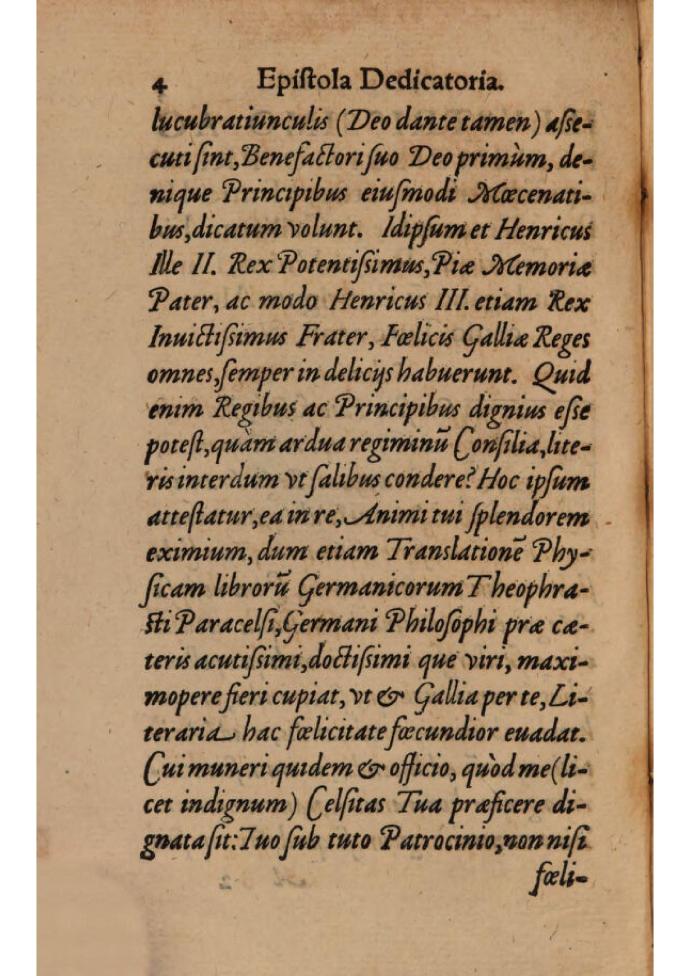 4 Epiſtola Dedicatoria.
lucubratiunculis (Deo dante tamen) aſſe-
cuti ſint, Benefactori ſuo Deo primùm, de-
nique Principibus eiuſmodi Mœcenati-
bus, dicatum volunt. Idipſum et Henricus
Ille II. Rex Potentiſsimus, Piæ Memoriæ
Pater, ac modo Henricus III. etiam Rex
Inuictiſsimus Frater, Fœlicis Galliæ Reges
omnes, ſemper in delicijs habuerunt. Quid
enim Regibus ac Principibus dignius eſſe
poteſt, quàm ardua regiminū Conſilia, lite-
ris interdum vt ſalibus condere? Hoc ipſum
atteſtatur, ea in re, Animi tui ſplendorem
eximium, dum etiam Translationē Phy-
ſicam librorū Germanicorum Theophra-
ſti Paracelſi, Germani Philoſophi præ cæ-
teris acutiſsimi, doctiſsimi que viri, maxi-
mopere fieri cupiat, vt & Gallia per te, Li-
teraria hac fœlicitate fœcundior euadat.
Cui muneri quidem & officio, quòd me (li-
cet indignum) Celſitas Tua præficere di-
gnata ſit: Tuo ſub tuto Patrocinio, non niſi
fœli-